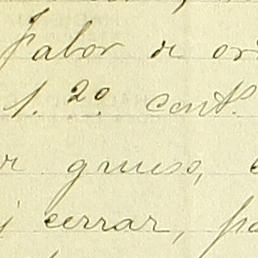 Fabor de
1. 20 cent.
grueso,
cerrar,